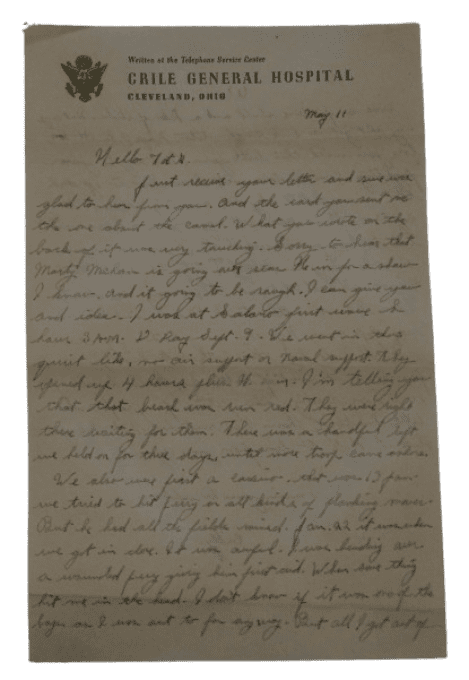 Written at the Telephone Service Center
CRILE GENERAL HOSPITAL
CLEVELAND, OHIO
May 11
Hello
just receive your letter and sure was
glad to hear from you. And the card you sent me
the one about the canal. What you wrote on the
back of it was very touching. Sorry to hear that
Marty is going over seas. He in for a show
I know. and it going to be rough. I can give you
and idea. I was at Salerno first wave H
hour 3 A.M. D Day Sept. 9. We went in there
quiet like, no air support or naval support. They
opened up 4 hours plus H. I'm telling you
that that beach was run red. They were right
there waiting for them. There was a handful left
we held on for three days, until more troop came
We also were first a cassino. that was 13 Jan.
we tried to hit jerry in all kinds of flanking maneu-
But he had all the fields mined. Jan. 22 it was when
we got in close. It was awful. I was bending over
a wounded giving him first aid. When some thing
hit me in the head. I don't know if it was one of the
boys or I was out to far anyway. But all I got out of